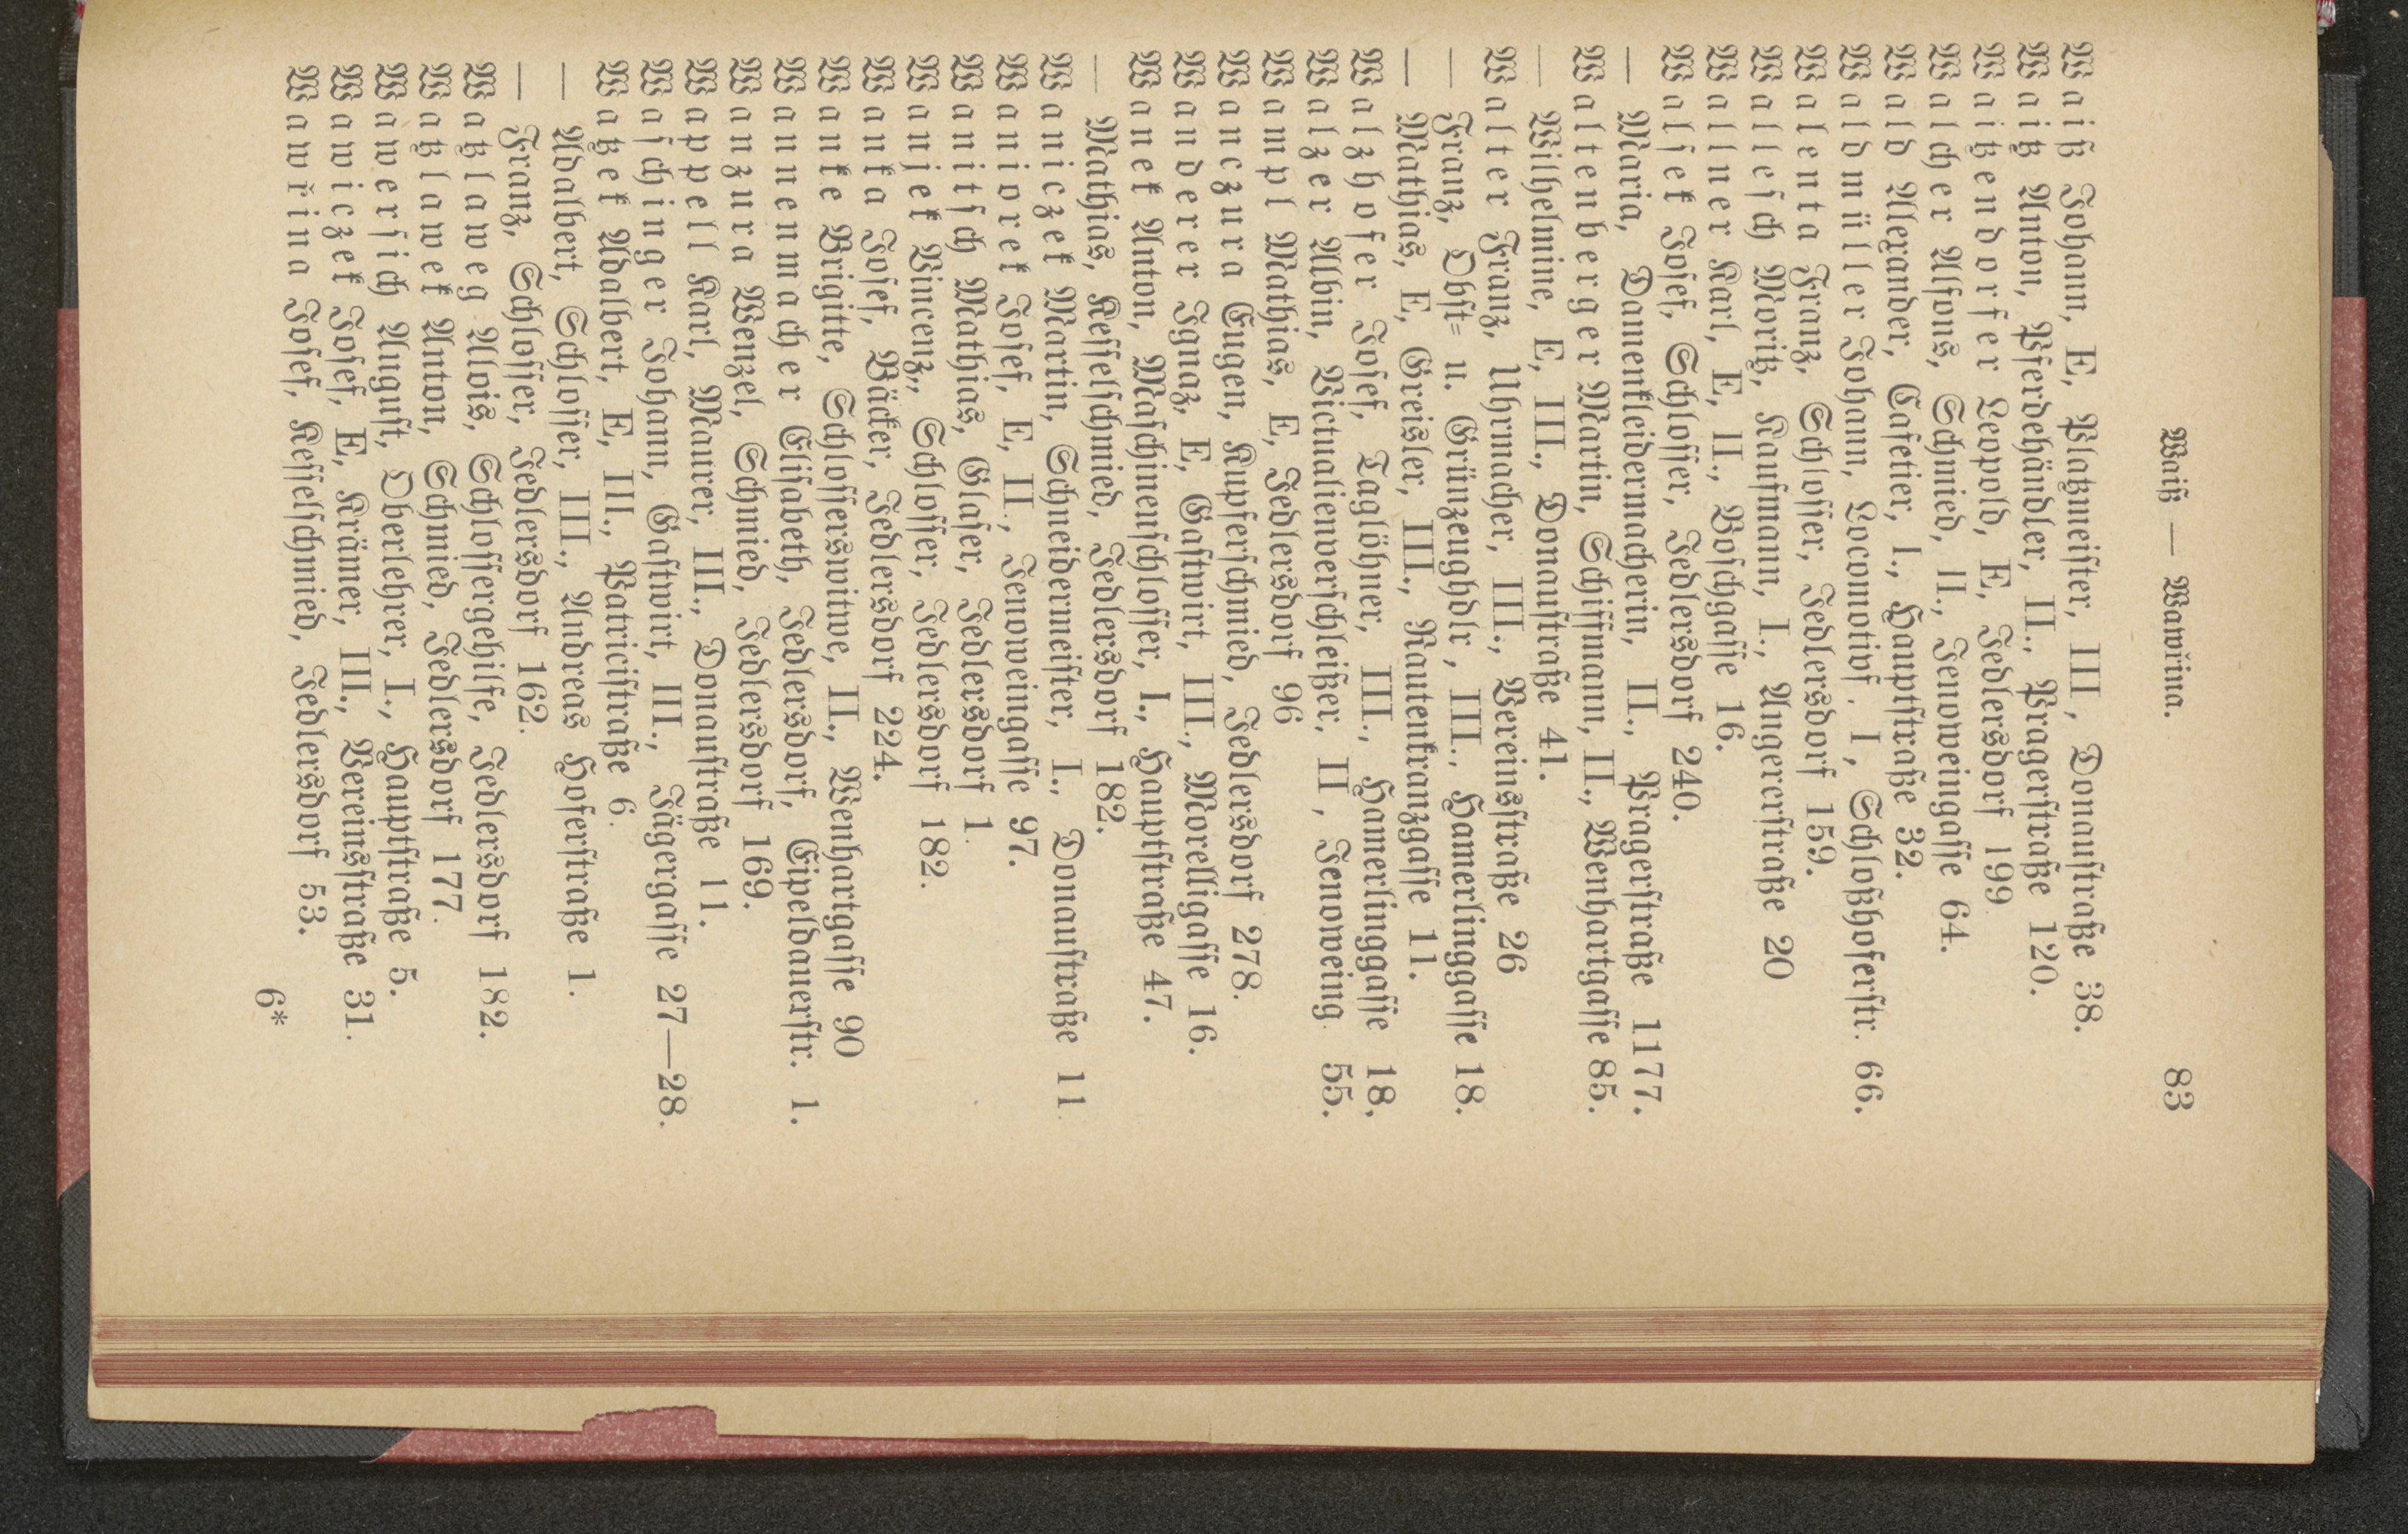 Waiß — Wawřina. 83
Waiß Johann, E, Platzmeister, III, Donaustraße 38.
Waiß Anton, Pferdehändler, II., Pragerstraße 120.
Waißendorfer Leopold, E, Jedlersdorf 199
Walcher Alfons, Schmied, II., Jenoweingasse 64.
Wald Alexander, Cafetier, I., Hauptstraße 32.
Waldmüller Johann, Locomotivf., I, Schloßhoferstr. 66.
Walenta Franz, Schlosser, Jedlersdorf 159.
Wallesch Moritz, Kaufmann, I., Angererstraße 20
Wallner Karl, E, II., Boschgasse 16.
Walsek Josef, Schlosser, Jedlersdorf 240.
— Maria, Damenkleidermacherin, II., Pragerstraße 1177.
Waltenberger Martin, Schiffmann, II., Wenhartgasse 85.
— Wilhelmine, E, III., Donaustraße 41.
Walter Franz, Uhrmacher, III., Vereinsstraße 26
— Franz, Obst= u. Grünzeughdlr, III., Hamerlinggasse 18.
— Matthias, E, Greisler, III., Rautenkranzgasse 11.
Walzhofer Josef, Taglöhner, III., Hamerlinggasse 18.
Walzer Albin, Victualienverschleißer, II, Jenoweing 55.
Wampl Mathias, E, Jedlersdorf 96
Wanczura Eugen, Kupferschmied, Jedlersdorf 278.
Wanderer Ignaz, E, Gastwirt, III., Morelligasse 16.
Wanek Anton, Maschinenschlosser, I., Hauptstraße 47.
— Mathias, Kesselschmied, Jedlersdorf 182.
Waniczek Martin, Schneidermeister, I., Donaustraße 11
Waniorek Josef, E, II., Jenoweingasse 97.
Wanitsch Mathias, Glaser, Jedlersdorf 1.
Wanjek Vincenz, Schlosser, Jedlersdorf 182.
Wanka Josef, Bäcker, Jedlersdorf 224.
Wanke Brigitte, Schlosserswitwe, II., Wenhartgasse 90
Wannenmacher Elisabeth, Jedlersdorf, Eipeldauerstr. 1.
Wanzura Wenzel, Schmied, Jedlersdorf 169.
Wappell Karl, Maurer, III., Donaustraße 11.
Waschinger Johann, Gastwirt, III., Jägergasse 27—28.
Watzek Adalbert, E, III., Patricistraße 6.
— Adalbert, Schlosser, III., Andreas Hoferstraße 1.
— Franz, Schlosser, Jedlersdorf 162.
Watzlaweg Alois, Schlossergehilfe, Jedlersdorf 182.
Watzlawek Anton, Schmied, Jedlersdorf 177.
Wawersich August, Oberlehrer, I., Hauptstraße 5.
Wawiczek Josef, E, Krämer, III., Vereinsstraße 31.
Wawřina Josef, Kesselschmied, Jedlersdorf 53.
6*